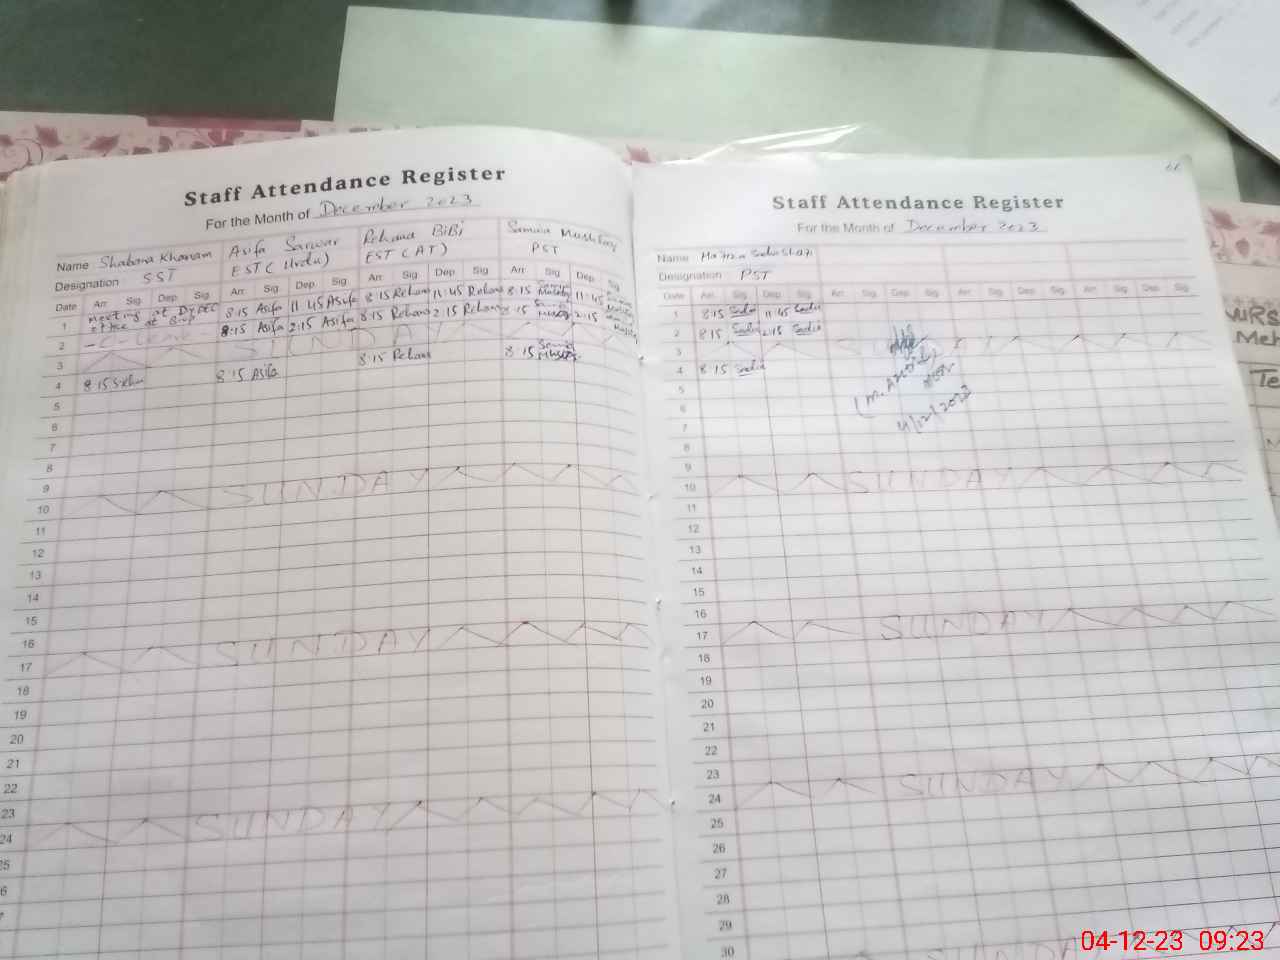 Staff Attendance Register
For the Month of December 2023
Name Shabana Khanam Asifa Sarwar Rehana BiBi Samina Mushtaq
Designation SST EST (Urdu) EST (AT) PST
Date Arr Sig Dep Sig Arr Sig Dep Sig Arr Sig Dep Sig Arr Sig Dep Sig
1 meeting at office at 8:15 Asifa 11:45 Asifa 8:15 Rehana 11:45 Rehana 8:15 11:45
2 8:15 Asifa 2:15 Asifa 8:15 Rehana 2:15 Rehana 8:15 2:15
3 SUNDAY
4 8:15 8:15 Asifa 8:15 Rehana 8:15
5
6
7
8
9
10 SUNDAY
11
12
13
14
15
16
17 SUNDAY
18
19
20
21
22
23
24 SUNDAY
25
Staff Attendance Register
For the Month of December 2023
Name Sadia
Designation PST
Date Arr. Sig. Dep. Sig. Arr. Sig. Dep. Sig. Arr. Sig. Dep. Sig. Arr. Sig. Dep. Sig.
1 8:15 Sadia 11:45 Sadia
2 8:15 Sadia 2:15 Sadia
3 SUNDAY
4 8:15 Sadia
5
6
7
8
9
10 SUNDAY
11
12
13
14
15
16
17 SUNDAY
18
19
20
21
22
23
24 SUNDAY
25
26
27
28
29
30
4/12/2023
04-12-23 09:23